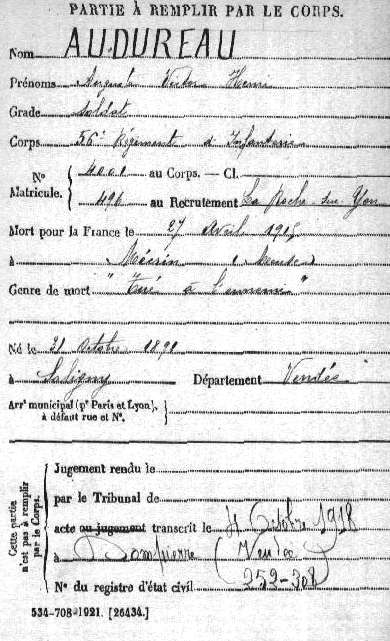 PARTIE À REMPLIR PAR LE CORPS.
Nom AUDUREAU
Prénoms Auguste Victor Henri
Grade Soldat
Corps 56e Régiment d'Infanterie
N° Matricule. { 4001 au Corps. — Cl.
496 au Recrutement La Roche sur Yon
Mort pour la France le 27 Avril 1915
à Mécrin (Meuse)
Genre de mort "Tué à l'ennemi"
Né le 21 Octobre 1891
à Saligny Département Vendée
Arrt municipal (pr Paris et Lyon), à défaut rue et N°. }
Cette partie n'est pas à remplir par le Corps. {
Jugement rendu le
par le Tribunal de
acte ou jugement transcrit le 4 Octobre 1918
à Dompierre (Vendée)
N° du registre d'état civil 252-308
534-708-1921. [26434.]